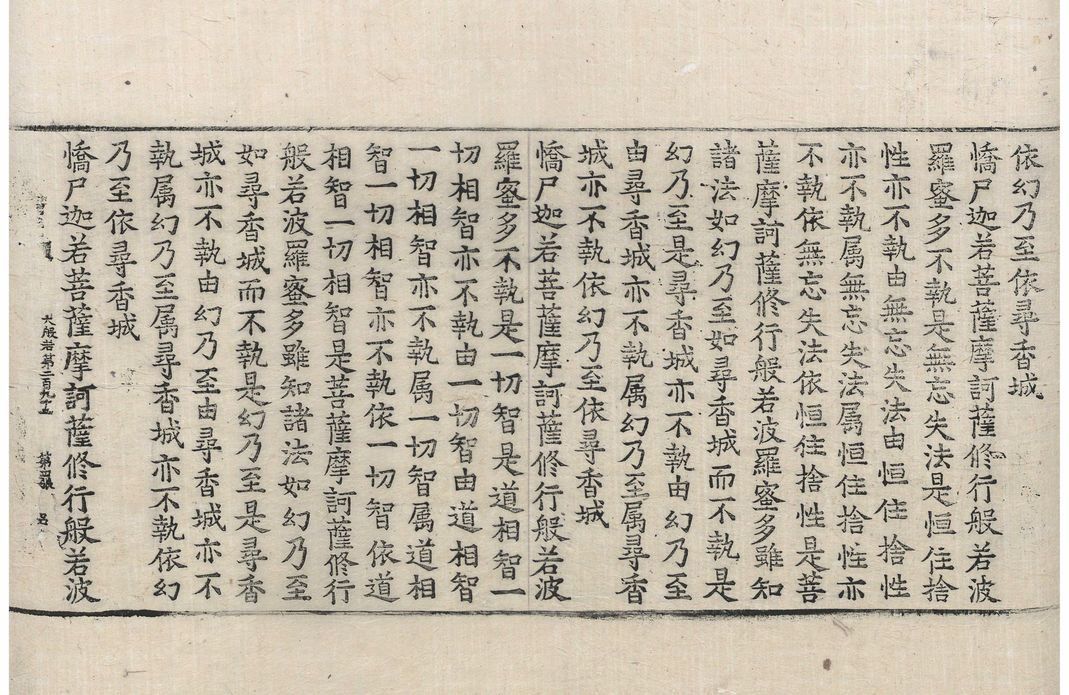 依幻乃至依尋香城
憍尸迦若菩薩摩訶薩修行般若波
羅蜜多不執是無忘失法是恒住捨
性亦不執由無忘失法由恒住捨性
亦不執属無忘失法属恒住捨性亦
不執依無忘失法依恒住捨性是菩
薩摩訶薩修行般若波羅蜜多雖知
諸法如幻乃至如尋香城而不執是
幻乃至是尋香城亦不執由幻乃至
由尋香城亦不執属幻乃至属尋香
城亦不執依幻乃至依尋香城
憍尸迦若菩薩摩訶薩修行般若波
羅蜜多不執是一切智是道相智一
切相智亦不執由一切智由道相智
一切相智亦不執属一切智属道相
智一切相智亦不執依一切智依道
相智一切相智是菩薩摩訶薩修行
般若波羅蜜多雖知諸法如幻乃至
如尋香城而不執是幻乃至是尋香
城亦不執由幻乃至由尋香城亦不
執属幻乃至属尋香城亦不執依幻
乃至依尋香城
憍尸迦若菩薩摩訶薩修行般若波
大般若第二百九十五 第四張